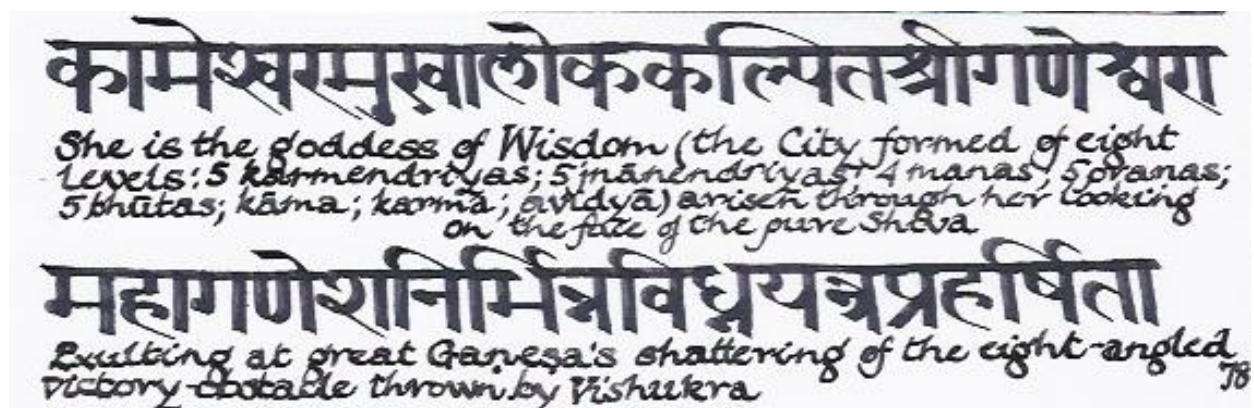 कामेश्वरमुखालोककल्पितश्रीगणेश्वरा
She is the goddess of Wisdom (the City formed of eight
Levels: 5 karmendriyas; 5 jnānendriyas; 4 manas; 5 pranas;
5 bhūtas; kāma; karma; avidyā) arisen through her looking
on the face of the pure Sheva
महागणेशनिर्भिन्नविघ्नयन्त्रप्रहर्षिता
Exulting at great Ganeṣa's shattering of the eight-angled
victory-obstacle thrown by Vishukra
78